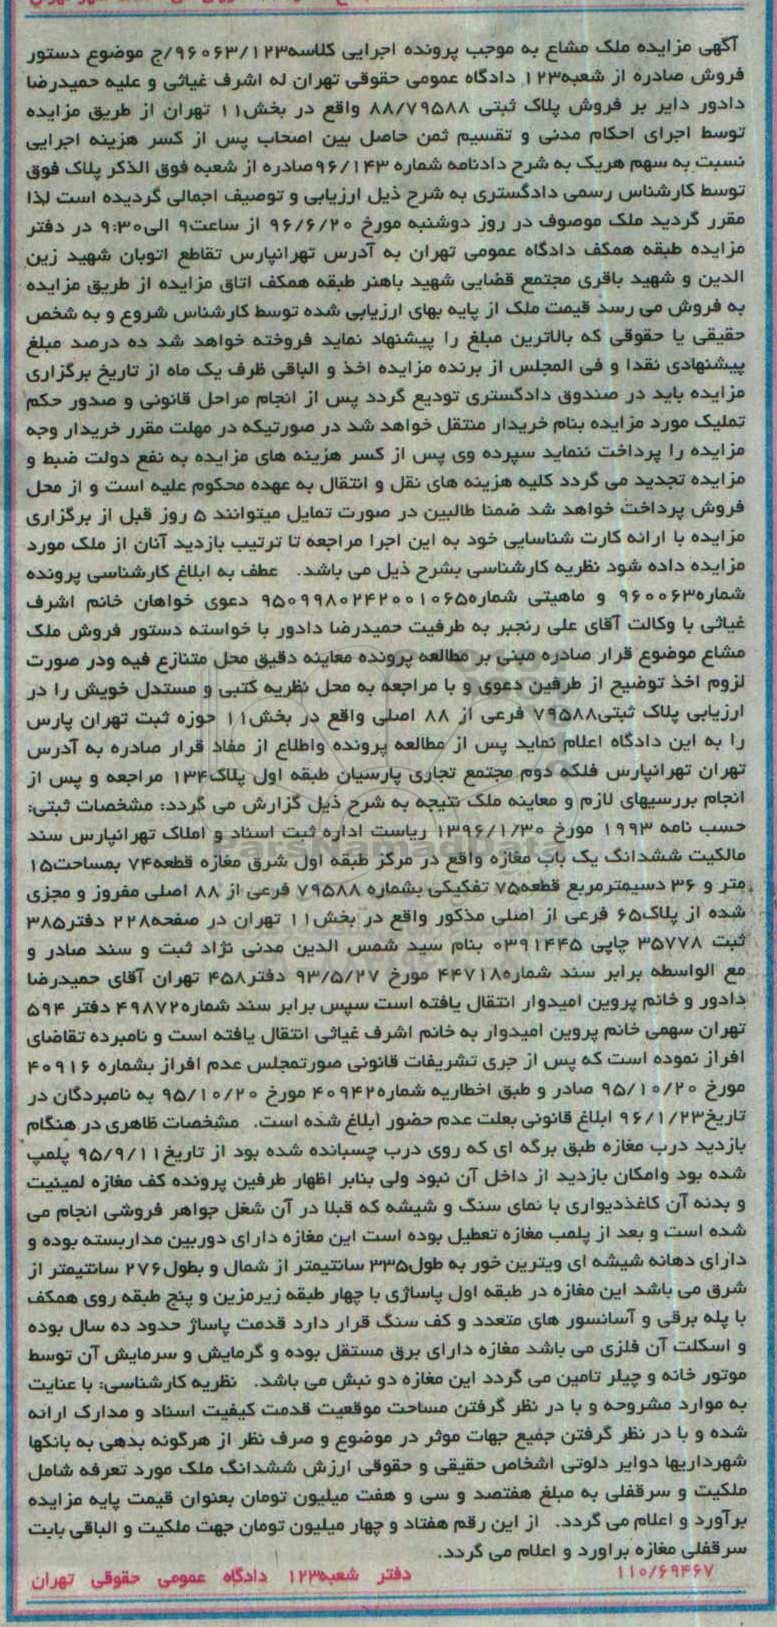 آگهی مزایده ملک مشاع به موجب پرونده اجرایی کلاسه۹۶۰۶۳/۱۲۳/ج موضوع دستور
فروش صادره از شعبه۱۲۳ دادگاه عمومی حقوقی تهران له اشرف غیاثی و علیه حمیدرضا
دادور دایر بر فروش پلاک ثبتی ۸۸/۷۹۵۸۸ واقع در بخش۱۱ تهران از طریق مزایده
توسط اجرای احکام مدنی و تقسیم ثمن حاصل بین اصحاب پس از کسر هزینه اجرایی
نسبت به سهم هریک به شرح دادنامه شماره ۹۶/۱۴۳صادره از شعبه فوق الذکر پلاک فوق
توسط کارشناس رسمی دادگستری به شرح ذیل ارزیابی و توصیف اجمالی گردیده است لذا
مقرر گردید ملک موصوف در روز دوشنبه مورخ ۹۶/۶/۲۰ از ساعت۹ الی۹:۳۰ در دفتر
مزایده طبقه همکف دادگاه عمومی تهران به آدرس تهرانپارس تقاطع اتوبان شهید زین
الدین و شهید باقری مجتمع قضایی شهید باهنر طبقه همکف اتاق مزایده از طریق مزایده
به فروش می رسد قیمت ملک از پایه بهای ارزیابی شده توسط کارشناس شروع و به شخص
حقیقی یا حقوقی که بالاترین مبلغ را پیشنهاد نماید فروخته خواهد شد ده درصد مبلغ
پیشنهادی نقدا و فی المجلس از برنده مزایده اخذ و الباقی ظرف یک ماه از تاریخ برگزاری
مزایده باید در صندوق دادگستری تودیع گردد پس از انجام مراحل قانونی و صدور حکم
تملیک مورد مزایده بنام خریدار منتقل خواهد شد در صورتیکه در مهلت مقرر خریدار وجه
مزایده را پرداخت ننماید سپرده وی پس از کسر هزینه های مزایده به نفع دولت ضبط و
مزایده تجدید می گردد کلیه هزینه های نقل و انتقال به عهده محکوم علیه است و از محل
فروش پرداخت خواهد شد ضمنا طالبین در صورت تمایل میتوانند ۵ روز قبل از برگزاری
مزایده با ارائه کارت شناسایی خود به این اجرا مراجعه تا ترتیب بازدید آنان از ملک مورد
مزایده داده شود نظریه کارشناسی بشرح ذیل می باشد. عطف به ابلاغ کارشناسی پرونده
شماره۹۶۰۰۶۳ و ماهیتی شماره۹۵۰۹۹۸۰۲۴۲۰۰۱۰۶۵ دعوی خواهان خانم اشرف
غیاثی با وکالت آقای علی رنجبر به طرفیت حمیدرضا دادور با خواسته دستور فروش ملک
مشاع موضوع قرار صادره مبنی بر مطالعه پرونده معاینه دقیق محل متنازع فیه ودر صورت
لزوم اخذ توضیح از طرفین دعوی و با مراجعه به محل نظریه کتبی و مستدل خویش را در
ارزیابی پلاک ثبتی۷۹۵۸۸ فرعی از ۸۸ اصلی واقع در بخش۱۱ حوزه ثبت تهران پارس
را به این دادگاه اعلام نماید پس از مطالعه پرونده واطلاع از مفاد قرار صادره به آدرس
تهران تهرانپارس فلکه دوم مجتمع تجاری پارسیان طبقه اول پلاک۱۳۴ مراجعه و پس از
انجام بررسیهای لازم و معاینه ملک نتیجه به شرح ذیل گزارش می گردد: مشخصات ثبتی:
حسب نامه ۱۹۹۳ مورخ ۱۳۹۶/۱/۳۰ ریاست اداره ثبت اسناد و املاک تهرانپارس سند
مالکیت ششدانگ یک باب مغازه واقع در مرکز طبقه اول شرق مغازه قطعه۷۴ بمساحت۱۵
متر و ۳۶ دسیمترمربع قطعه۷۵ تفکیکی بشماره ۷۹۵۸۸ فرعی از ۸۸ اصلی مفروز و مجزی
شده از پلاک۶۵ فرعی از اصلی مذکور واقع در بخش۱۱ تهران در صفحه۲۲۸ دفتر۳۸۵
ثبت ۳۵۷۷۸ چاپی ۰۳۹۱۴۴۵ بنام سید شمس الدین مدنی نژاد ثبت و سند صادر و
مع الواسطه برابر سند شماره۴۴۷۱۸ مورخ ۹۳/۵/۲۷ دفتر۴۵۸ تهران آقای حمیدرضا
دادور و خانم پروین امیدوار انتقال یافته است سپس برابر سند شماره۴۹۸۷۲ دفتر ۵۹۴
تهران سهمی خانم پروین امیدوار به خانم اشرف غیاثی انتقال یافته است و نامبرده تقاضای
افراز نموده است که پس از جری تشریفات قانونی صورتمجلس عدم افراز بشماره ۴۰۹۱۶
مورخ ۹۵/۱۰/۲۰ صادر و طبق اخطاریه شماره۴۰۹۴۲ مورخ ۹۵/۱۰/۲۰ به نامبردگان در
تاریخ۹۶/۱/۲۳ ابلاغ قانونی بعلت عدم حضور ابلاغ شده است. مشخصات ظاهری در هنگام
بازدید درب مغازه طبق برگه ای که روی درب چسبانده شده بود از تاریخ۹۵/۹/۱۱ پلمپ
شده بود وامکان بازدید از داخل آن نبود ولی بنابر اظهار طرفین پرونده کف مغازه لمینیت
و بدنه آن کاغذدیواری با نمای سنگ و شیشه که قبلا در آن شغل جواهر فروشی انجام می
شده است و بعد از پلمب مغازه تعطیل بوده است این مغازه دارای دوربین مداربسته بوده و
دارای دهانه شیشه ای ویترین خور به طول۳۳۵ سانتیمتر از شمال و بطول۲۷۶ سانتیمتر از
شرق می باشد این مغازه در طبقه اول پاساژی با چهار طبقه زیرمزین و پنج طبقه روی همکف
با پله برقی و آسانسور های متعدد و کف سنگ قرار دارد قدمت پاساژ حدود ده سال بوده
و اسکلت آن فلزی می باشد مغازه دارای برق مستقل بوده و گرمایش و سرمایش آن توسط
موتور خانه و چیلر تامین می گردد این مغازه دو نبش می باشد. نظریه کارشناسی: با عنایت
به موارد مشروحه و با در نظر گرفتن مساحت موقعیت قدمت کیفیت اسناد و مدارک ارائه
شده و با در نظر گرفتن جمیع جهات موثر در موضوع و صرف نظر از هرگونه بدهی به بانکها
شهرداریها دوایر دلوتی اشخاص حقیقی و حقوقی ارزش ششدانگ ملک مورد تعرفه شامل
ملکیت و سرقفلی به مبلغ هفتصد و سی و هفت میلیون تومان بعنوان قیمت پایه مزایده
برآورد و اعلام می گردد. از این رقم هفتاد و چهار میلیون تومان جهت ملکیت و الباقی بابت
سرقفلی مغازه براورد و اعلام می گردد.
۱۱۰/۶۹۴۶۷ دفتر شعبه۱۲۳ دادگاه عمومی حقوقی تهران
ParsNamadData